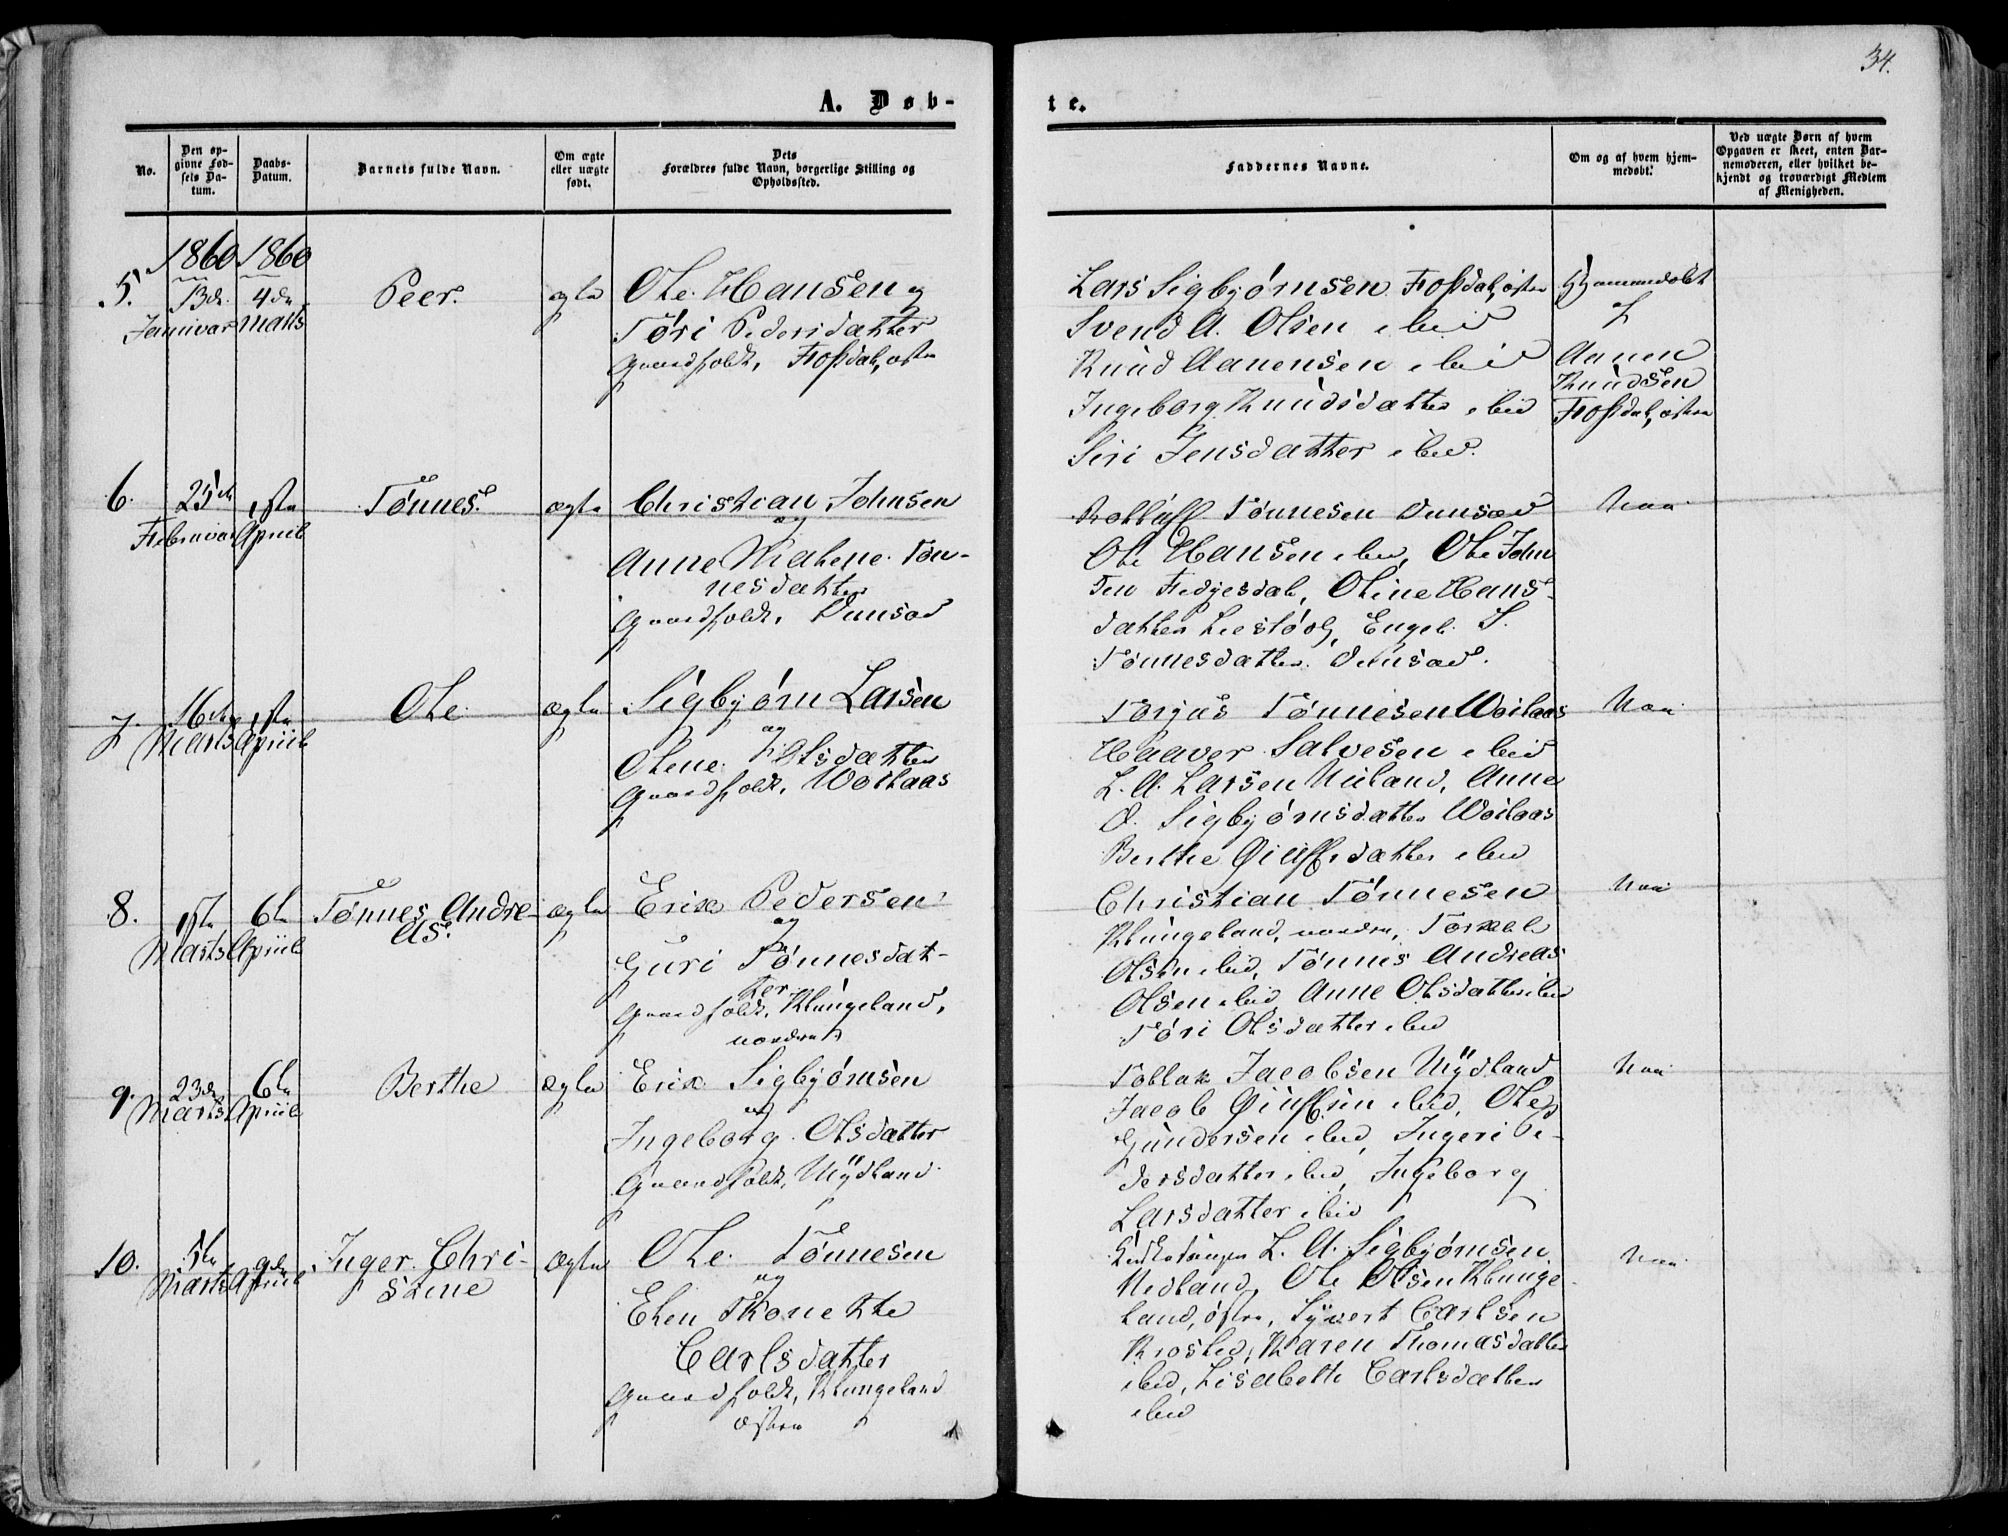 34.
A. Døb-
te.
No.
Den op-
givne Fød-
sels Da-
tum.
Daabs-
Datum.
Barnets fulde Navn.
Om ægte
eller uægte
født.
Dets
Forældres fulde Navn, borgerlige Stilling og
Opholdssted.
Faddernes Navne.
Om og af hvem hjem-
medøbt.
Ved uægte Børn af hvem
Opgaven er skeet, enten Bar-
nemoderen, eller hvilket be-
kjendt og troværdigt Medlem
af Menigheden.
1860 1860
5. 13de 4de Peer. ægte Ole Hansen og
Januar Marts Töri Pedersdatter
Gaardfolk, Flotzdal, østre
Lars Sigbjørnsen Flotzdal, østre
Svend A. Olsen ibid
Knud Aanensen ibid
Ingeborg Knudsdatter ibid
Siri Jensdatter ibid.
Hjemmedøbt
af
Aanen
Knudsen
Flotzdal, østre
6. 25de 1ste Tönnes. ægte Christian Johnsen
Februar April og
Anne Malene Tön-
nesdatter
Gaardfolk, Dunsæd
Tönnesen Dunsæd
Ole Hansen ibid, Ole John
sen Fedjesdal, Oline Hans-
datter Liestøøl, Engel S.
Tönnesdatter Dunsæd.
Nei
7. 16de 1ste Ole ægte Sigbjørn Larsen
Marts April og
Olene Olsdatter
Gaardfolk, Woilaas
Torjus Tönnesen Woilaas
Haaver Salvesen ibid
L. A. Larsen Nuland, Anne
O. Sigbjørnsdatter Woilaas
Berthe Øiulfsdatter ibid
Nei
8. 1ste 6te Tönnes Andre- ægte Erik Pedersen
Marts April as. og
Guri Tönnesdat-
ter
Gaardfolk, Klungeland,
nordre
Christian Tönnesen
Klungeland, nordre, Torkel
Olsen ibid, Tönnes Andreas
Olsen ibid Anne Olsdatter ibid
Töri Olsdatter ibid
Nei
9. 23de 6te Berthe ægte Erik Sigbjørnsen
Marts April og
Ingeborg Olsdatter
Gaardfolk, Mÿdland
Tollak Jacobsen Mÿdland
Jacob Øiulfsen ibid, Ole
Gundersen ibid, Ingeri Pe-
dersdatter ibid, Ingeborg
Larsdatter ibid
Nei
10. 5te 9de Inger Chri- ægte Ole Tönnesen
Marts April stine og
Elen Tonette
Carlsdatter
Gaardfolk, Klungeland
østre
Kirkesanger L. A. Sigbjørnsen
Nedland, Ole Olsen Klunge-
land, østre, Syvert Carlsen
Krosli, Karen Thomasdatter
ibid, Lisabeth Carlsdatter
ibid
Nei